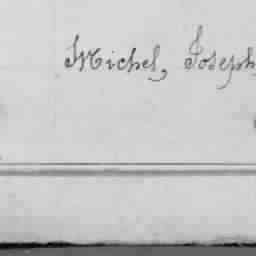 Michel, Joseph